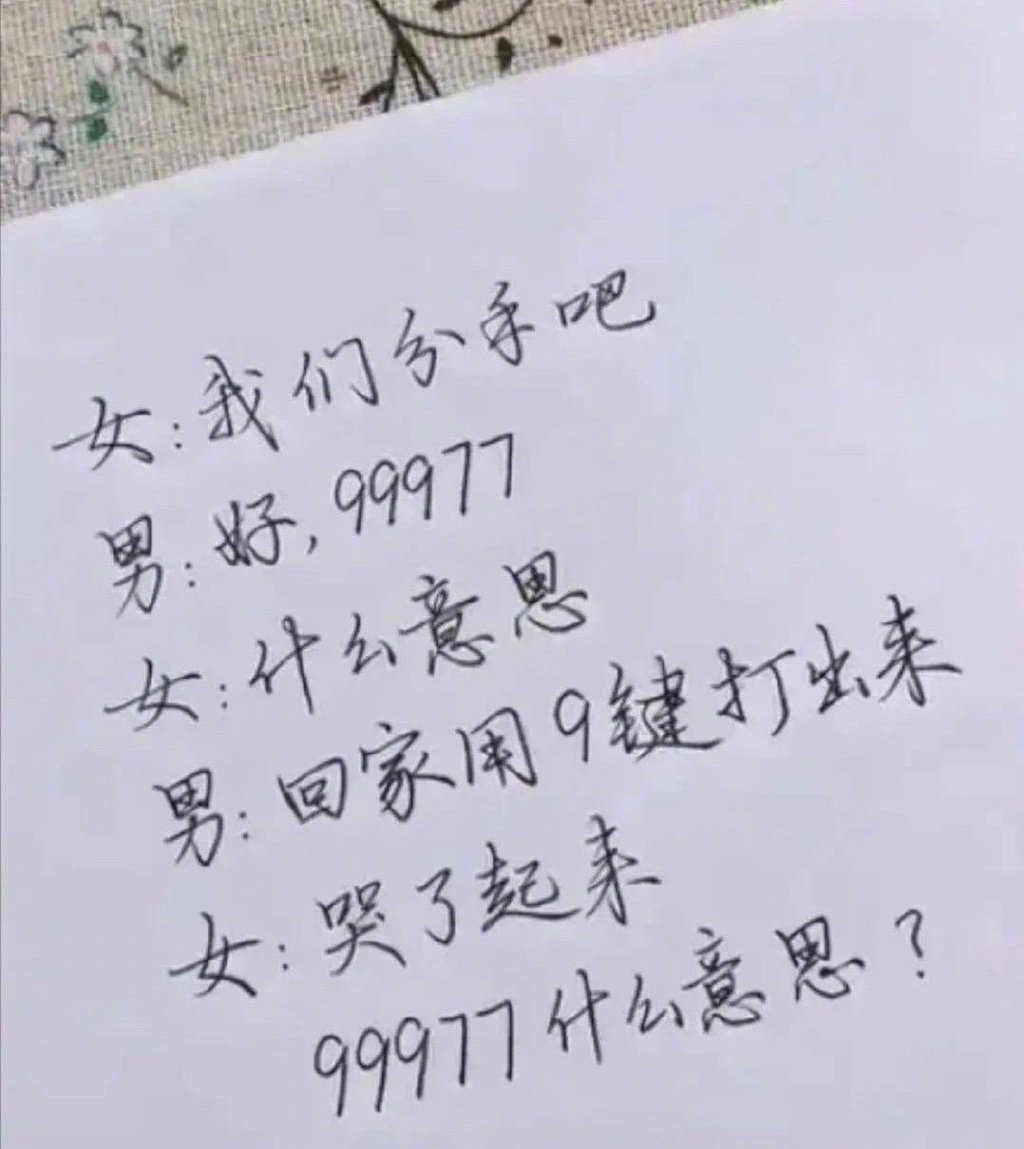 女:我们分手吧
男:好,99977
女:什么意思
男:回家用9键打出来
女:哭了起来
99977什么意思?